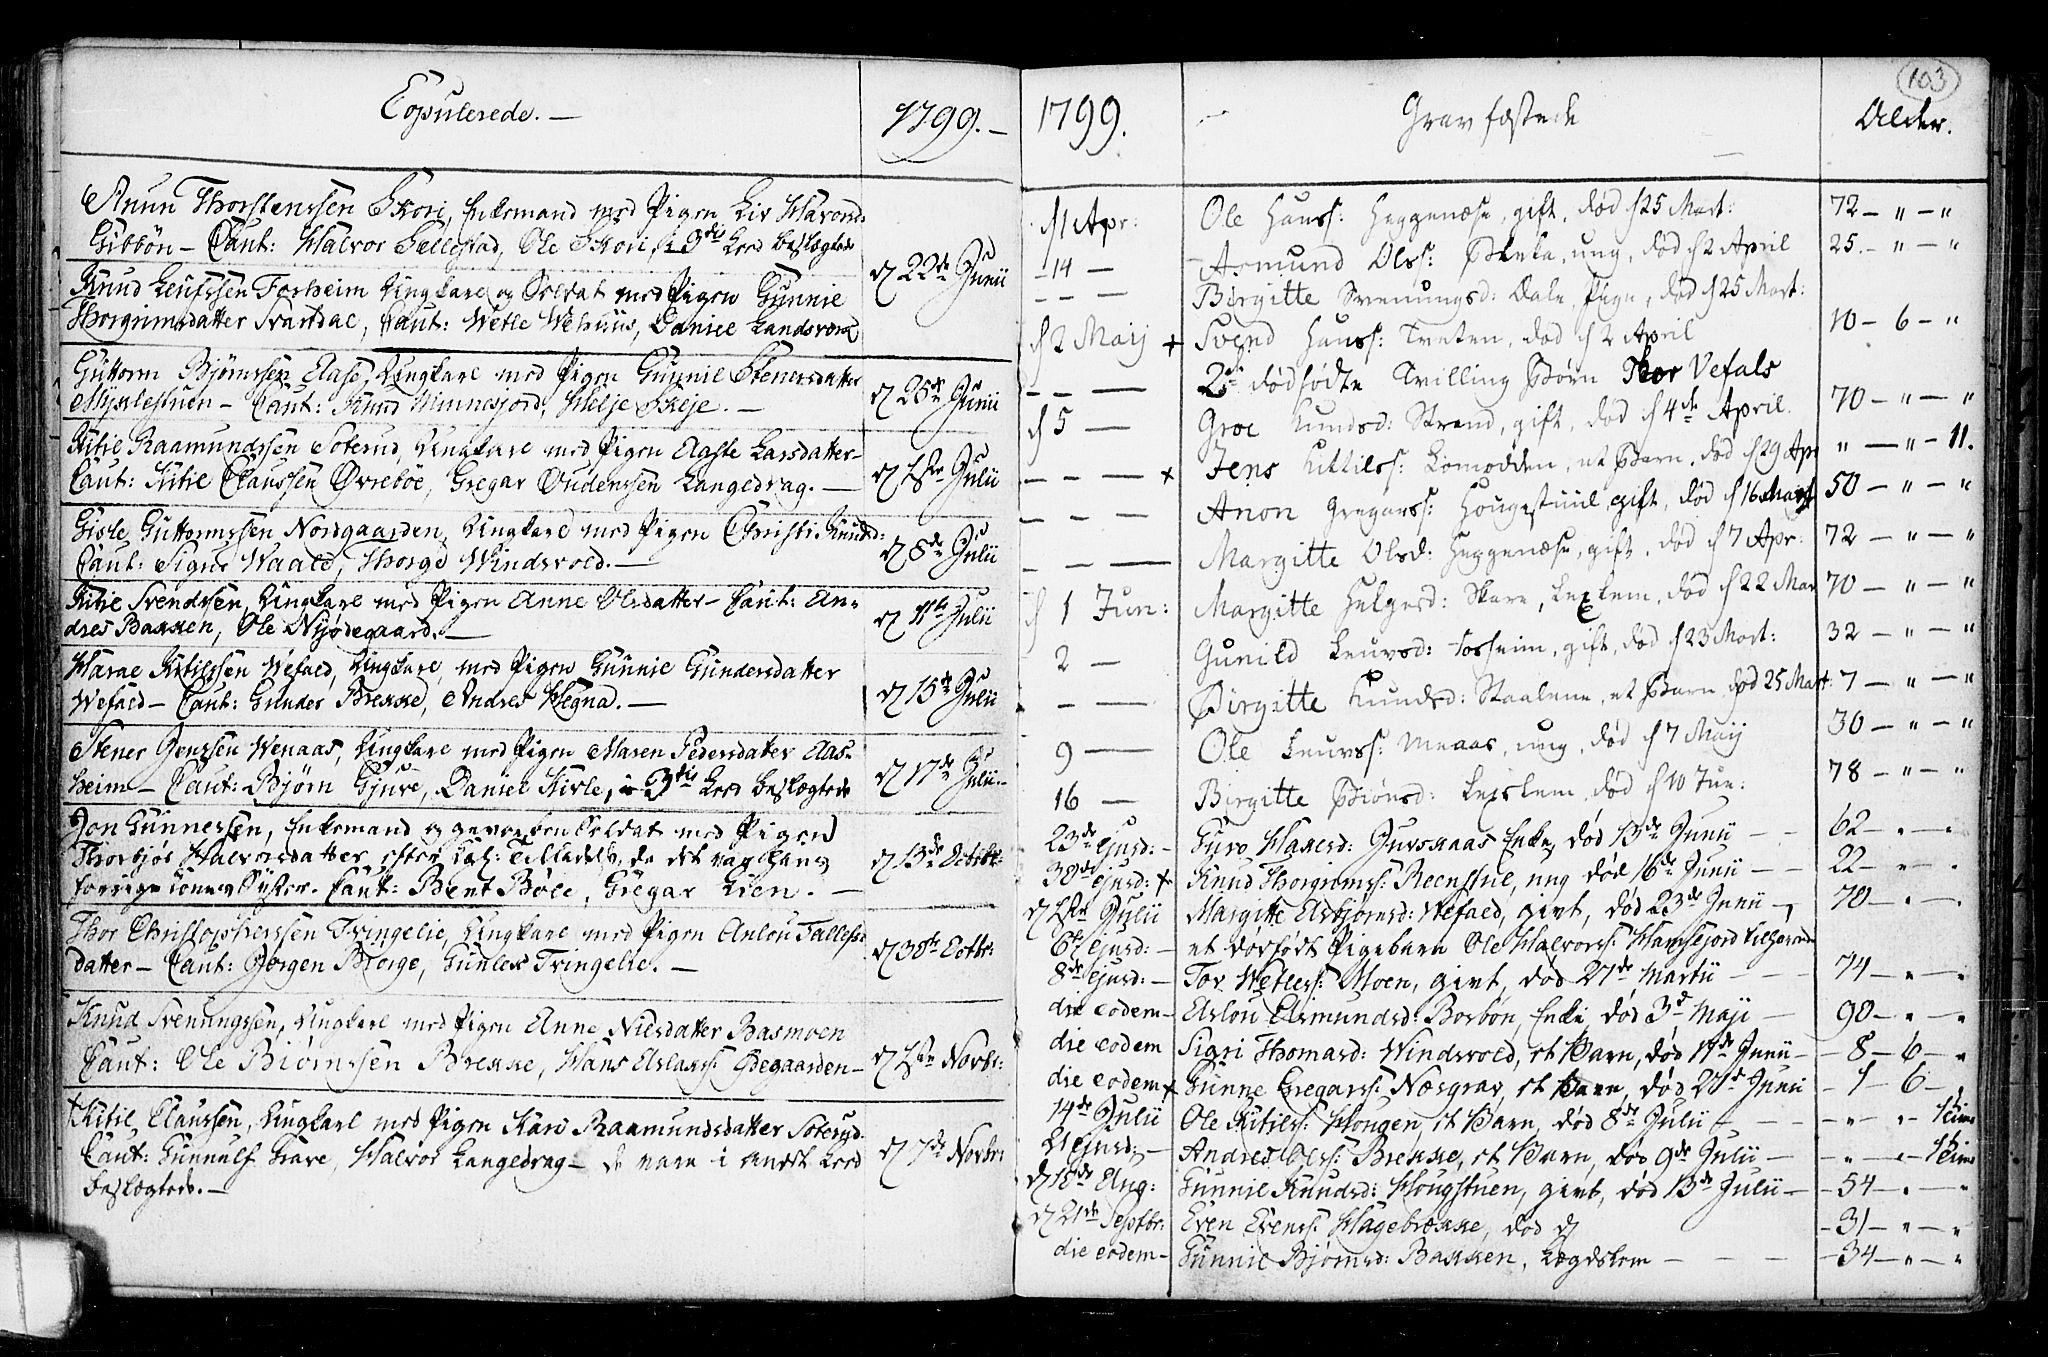 Copulerede. — 1799. —
Anun Thorstenssen Skori, Enkemand med Pigen Liv Havords:
Gibbøn — Caut: Halvor Sellestad, Ole Skori, i 3die Leed beslægtede
Knud Leufssen Forheim Ungkarl og Soldat med Pigen Gunnil d 22de Junii
Thorgrimsdatter Svartdal, Caut: Wetle Wehuus, Daniel Landsværk
Guttorm Bjørnssen Aase, Ungkarl med Pigen Gunnil Stenersdatter
Myklestuen — Caut: Knud Minnesjord, Helje Skeje. — d 25de Junii
Kitil Raamundssen Soterud, Ungkarl med Pigen Aaste Larsdatter —
Caut: Kitil Claussen Øvrebøe, Gregar Oudenssen Langedrag. — d 1ste Julii
Gisle Guttormssen Nordgaarden, Ungkarl med Pigen Christi Knudsd:
Caut: Signe Waale, Thorge Windsvold. — d 8de Julii
Kitil Svendssen, Ungkarl med Pigen Anne Olsdatter — Caut: An=
dres Bakken, Ole Nyødegaard. — d 11te Julii
Harae Kitilssen Wefald, Ungkarl, med Pigen Gunnil Gundersdatter
Wefald — Caut: Gunder Brekke, Andres Hegna. — d 15de Julii
Stener Jenssen Wenaas, Ungkarl med Pigen Maren Pedersdatter Aas=
heim — Caut: Bjørn Gjure, Daniel Kirle, i 3die Leed beslægtede d 17de Julii —
Jon Gunnessen, Enkemand og gevorben Soldat med Pigen
Thorbjør Halvorsdatter efter Kgl: Tilladelse, da det var hans
forrige Kones Syster. Caut: Bent Bøle, Gregar Lien. — d 13de Octibr:
Thor Christopherssen Tvingelie, Ungkarl med Pigen Anlou Tallefs=
datter — Caut: Jørgen Berge, Gunlek Tvingelie. — d 30te Octbr:
Knud Svenungssen, Ungkarl med Pigen Anne Nilsdatter Basmoen
Caut: Ole Biørnssen Brekke, Hans Aslakss: Ødegaarden — d 1ste Novbr:
† Kitil Claussen, Ungkarl med Pigen Kari Raamundsdatter Soterud.
Caut: Gunnulf Grave, Halvor Langedrag — de vare i andet Leed d 7de Novbr:
beslægtede. —
103
1799. Gravfæstede Alder.
11 Apr: Ole Hanss: Heggenæse, gift, død d 25 Mart: 72 — " — "
— 14 — Asmund Olss: Skeka, ung, død d 2 April 25. — " — "
— — — Birgitte Svenungsd: Dale, Pige, død d 25 Mart:
d 2 Maij + Svend Hanss: Tveten, død d 2 April 10 — 6 — "
— — — 2de dødfødte Tvilling Børn Thor Vefals
d 5 — Groe Knudsd: Strand, gift, død d 4de April. 70 — " — "
— — — + Jens Kittilss: Lomodden, et Barn, død d 29 Apr " — " — 11.
— — — Anon Gregarss: Hougestuul, gift, død d 16 Martij 50 — " — "
— — — Margitte Olsd: Heggenæse, gift, død d 7 Apr: 72 — " — "
d 1 Jun: Margitte Helgesd: Skare, Leylem, død d 22 Mar 70 — " — "
2 — Gunild Leuvsd: Forheim, gift, død d 23 Mart: 32 — " — "
— — Birgitte Knudsd: Staalene, et Barn, død 25 Mart: 7 — " — "
9 — Ole Leuvss: Menaas, ung, død d 7 Maij 30 — " — "
16 — Birgitte Biønsd: Leislem, død d 10 Jun: 78 — " — "
23de ejusd: — Guro Haresd: Jurskaas Enke, død 13de Junii — — 62 — " — "
30de ejusd: + Knud Thorgrimss: Reenstue, ung død 16de Junii — — 22 — " — "
d 1ste Julii Margitte Esbjørnsd: Wefald, givt, død 23de Junii — 70 — " — "
6te ejusd: — et dødfødt Pigebarn Ole Halvorss: Hamsejord tilhørende
8de ejusd: — Tov Wetless: Moen, givt, død 27de Martii 74 — " — "
die eodem — Aslou Asmundsd: Bosbøn, Enke, død 3d Maji — 90 — " — "
die eodem Sigri Thomasd: Windsvold, et Barn, død 17de Junii — — 8 — 6 — "
die eodem + Gunne Gregarss: Næsgrav, et Barn, død 27de Junii — 1 — 6 — "
14de Julii Ole Kitilss: Hougen, et Barn, død 8de Julii — — " — " — 1 Time
21 ejusd: — Andres Olss: Brekke, et Barn, død 9de Julii — — " — " — 1 Time
d 18de Aug: Gunnil Knudsd: Hougstuen, givt, død 13de Julii — — 54 — " — "
d 21de Septbr: Even Evenss: Hagebrekke, død d — 31 — " — "
die eodem — Gunnil Bjørnsd: Bakken, Lægdslem — — — 34 — " — "